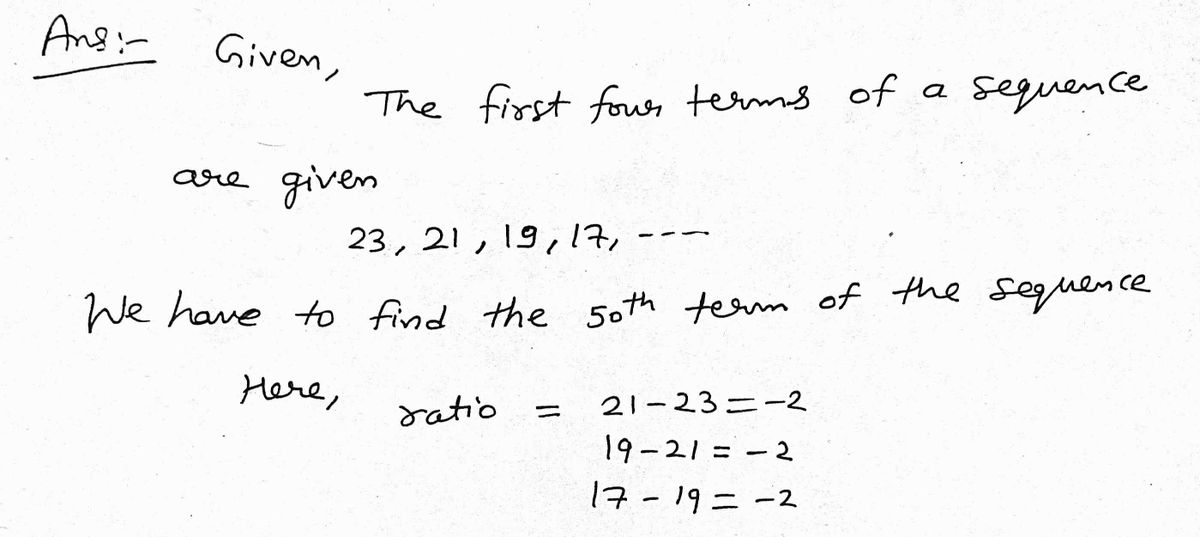 Ans:- Given,
The first four terms of a sequence
are given
23, 21, 19, 17, ---
We have to find the 50th term of the sequence
Here, ratio = 21-23=-2
19-21=-2
17-19=-2